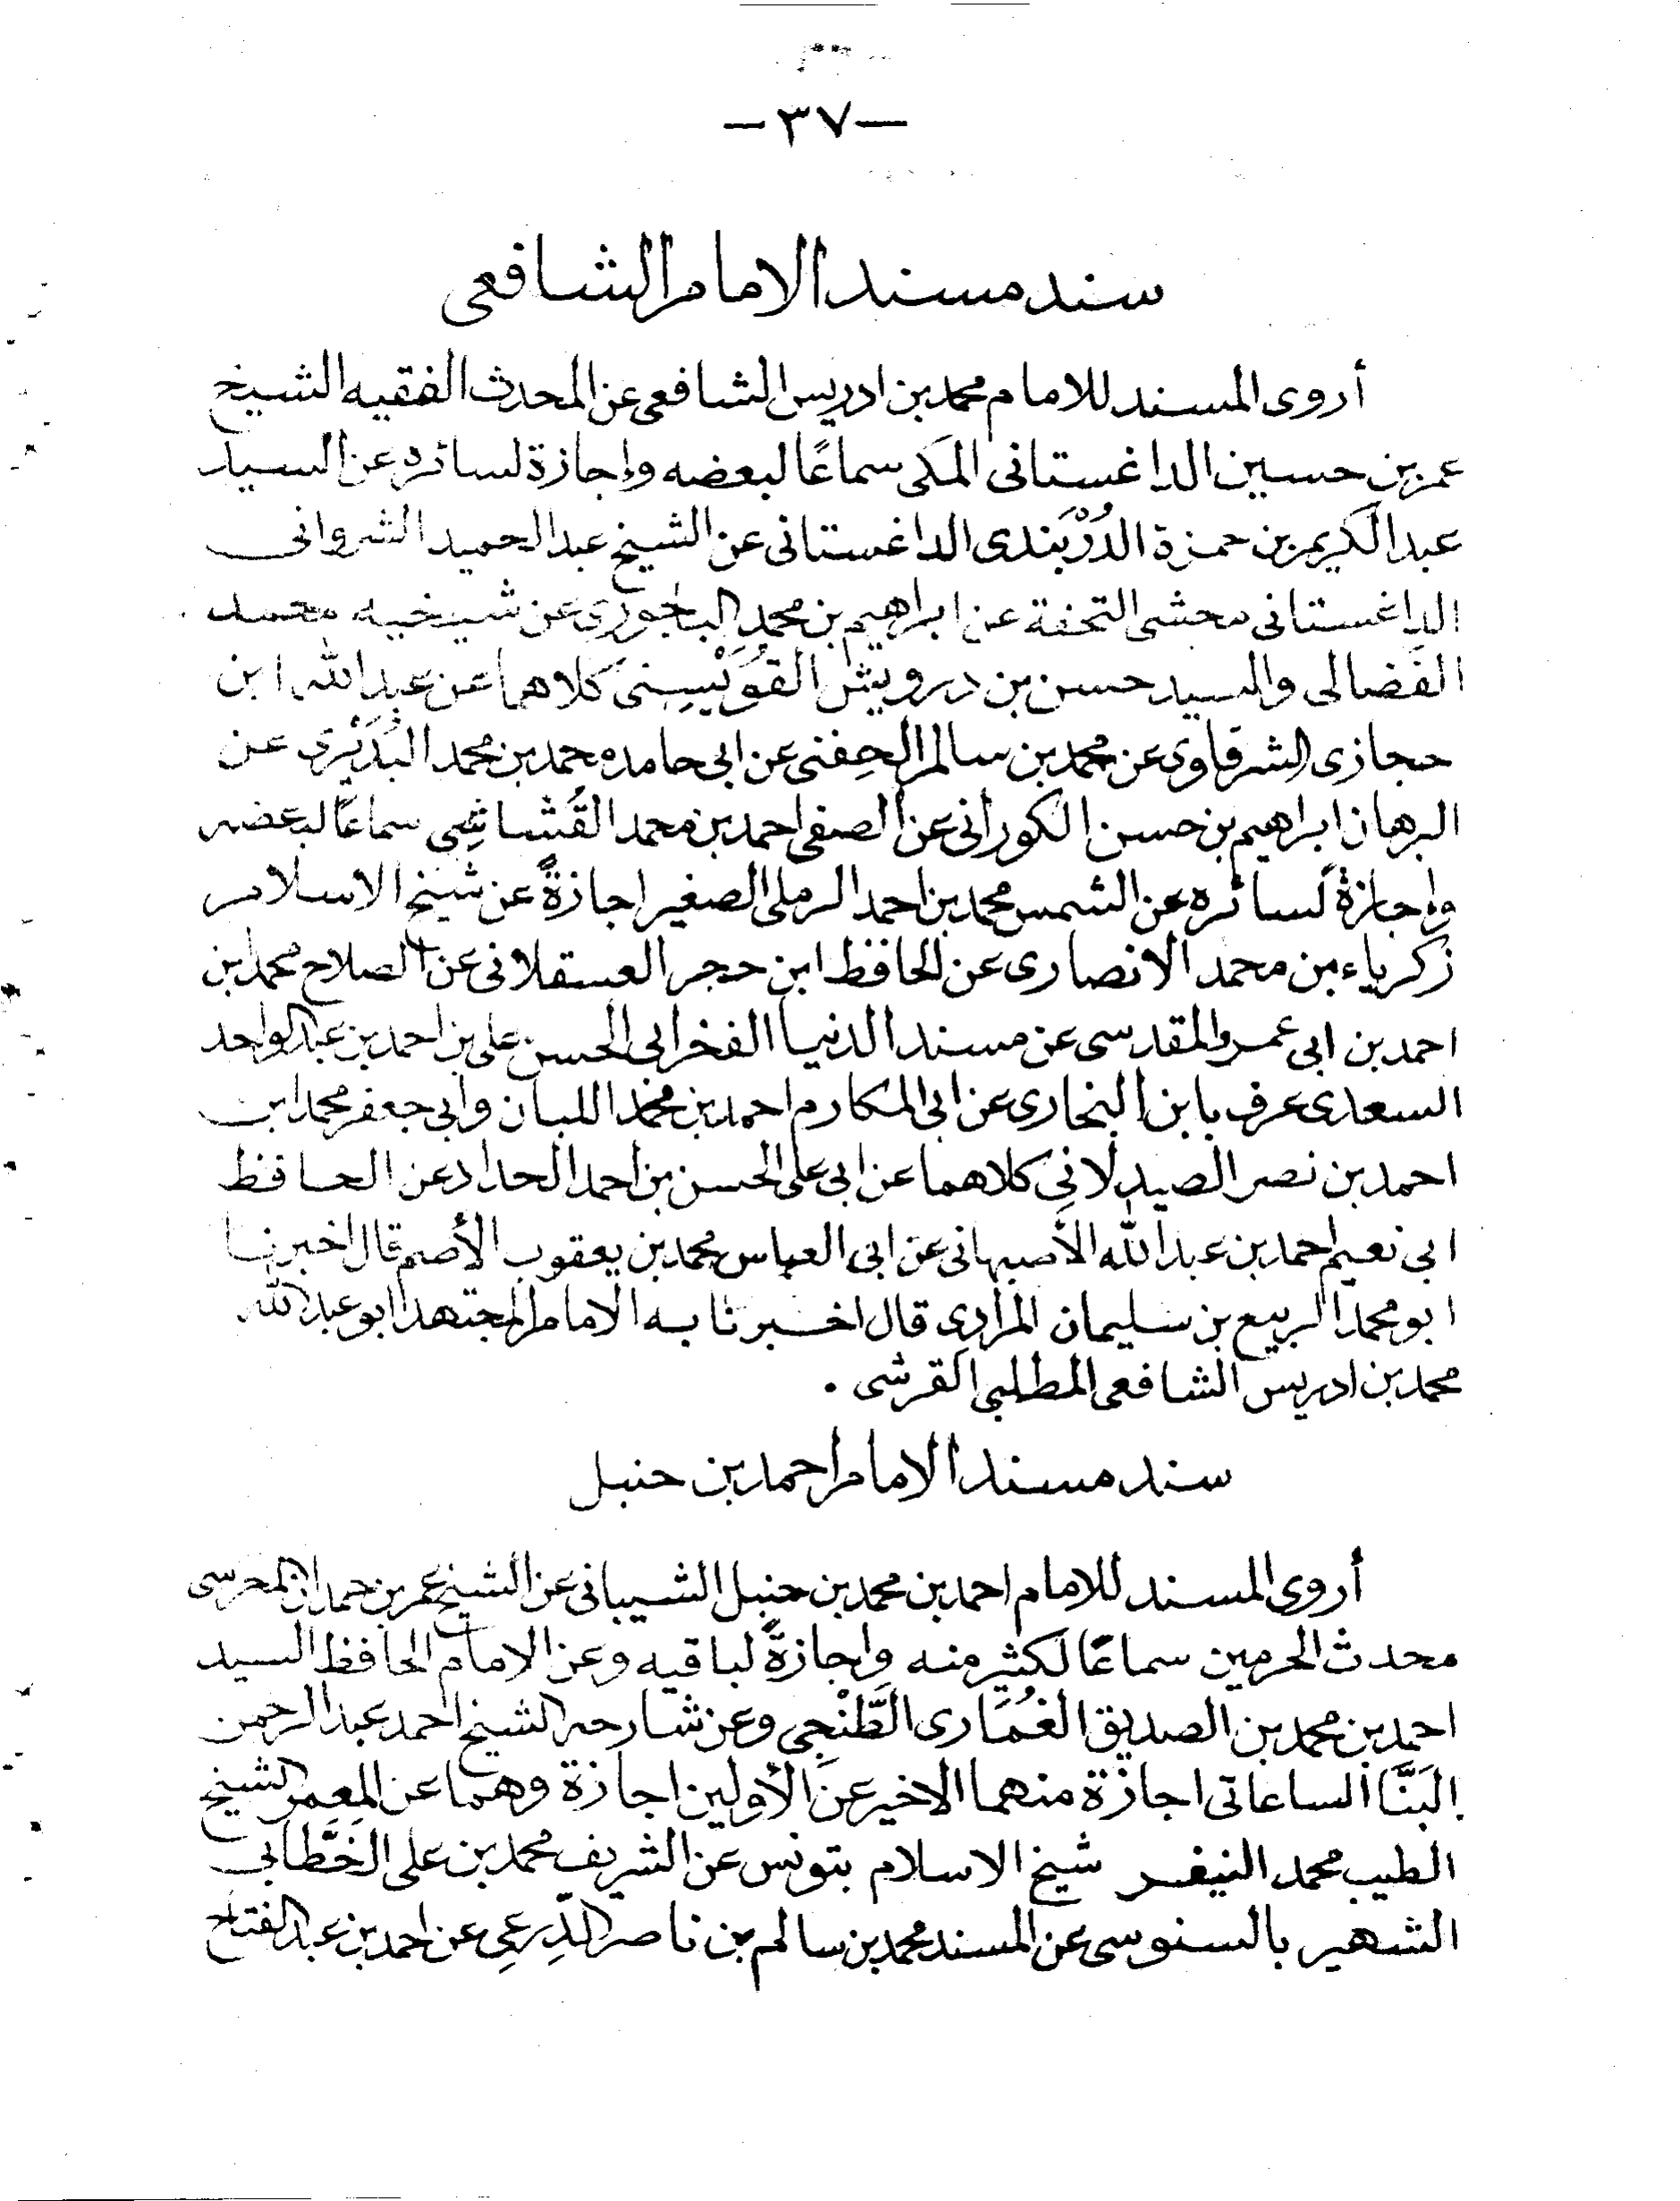 -٣٧-
سند مسند الامام الشافعى
أروى المسند للامام محمد بن ادريس الشافعى عن المحدث الفقيه الشيخ
عمر بن حسين الداغستانى المكى سماعًا لبعضه وإجازة لسائره عن السيد
عبد الكريم بن حمزة الدُرْبَندى الداغستانى عن الشيخ عبد الحميد الشروانى
الداغستانى محشى التحفة عن ابراهيم بن محمد الباجورى عن شيخيه محمد
الفَضالى والسيد حسن بن درويش القُوَيْسِنى كلاهما عن عبد الله ابن
حجازى الشرقاوى عن محمد بن سالم الحِفنى عن ابى حامد محمد بن محمد البُدَيْرى عن
البرهان ابراهيم بن حسن الكورانى عن الصفى احمد بن محمد القُشَاشِى سماعًا لبعضه
وإجازةً لسائره عن الشمس محمد بن احمد الرملى الصغير اجازةً عن شيخ الاسلام
زكرياء بن محمد الانصارى عن الحافظ ابن حجر العسقلانى عن الصلاح محمد بن
احمد بن ابى عمر والمقدسى عن مسند الدنيا الفخر ابى الحسن على بن احمد بن عبد الواحد
السعدى عرف بابن البخارى عن ابى المكارم احمد بن محمد اللبان وابى جعفر محمد ابن
احمد بن نصر الصيدلانِى كلاهما عن ابى على الحسن بن احمد الحداد عن الحافظ
ابى نعيم احمد بن عبد الله الأصبهانى عن ابى العباس محمد بن يعقوب الأصم قال اخبرنا
ابو محمد الربيع بن سليمان المرادى قال اخبرنا به الامام المجتهد ابو عبد الله
محمد بن ادريس الشافعى المطلبى القرشى .
سند مسند الامام احمد بن حنبل
أروى المسند للامام احمد بن محمد بن حنبل الشيبانى عن الشيخ عمر بن حمدان المحرسى
محدث الحرمين سماعًا لكثير منه وإجازةً لباقيه وعن الامام الحافظ السيد
احمد بن محمد بن الصديق الغُمَارى الطَّنْجِى وعن شارحه الشيخ احمد عبد الرحمن
البَنَّا الساعاتى اجازة منهما الاخير عن الأولين اجازة وهما عن المعمر الشيخ
الطيب محمد النيفر شيخ الاسلام بتونس عن الشريف محمد بن على الخَطَّابى
الشهير بالسنوسى عن المسند محمد بن سالم بن ناصر الدِرعِى عن احمد بن عبد الفتاح